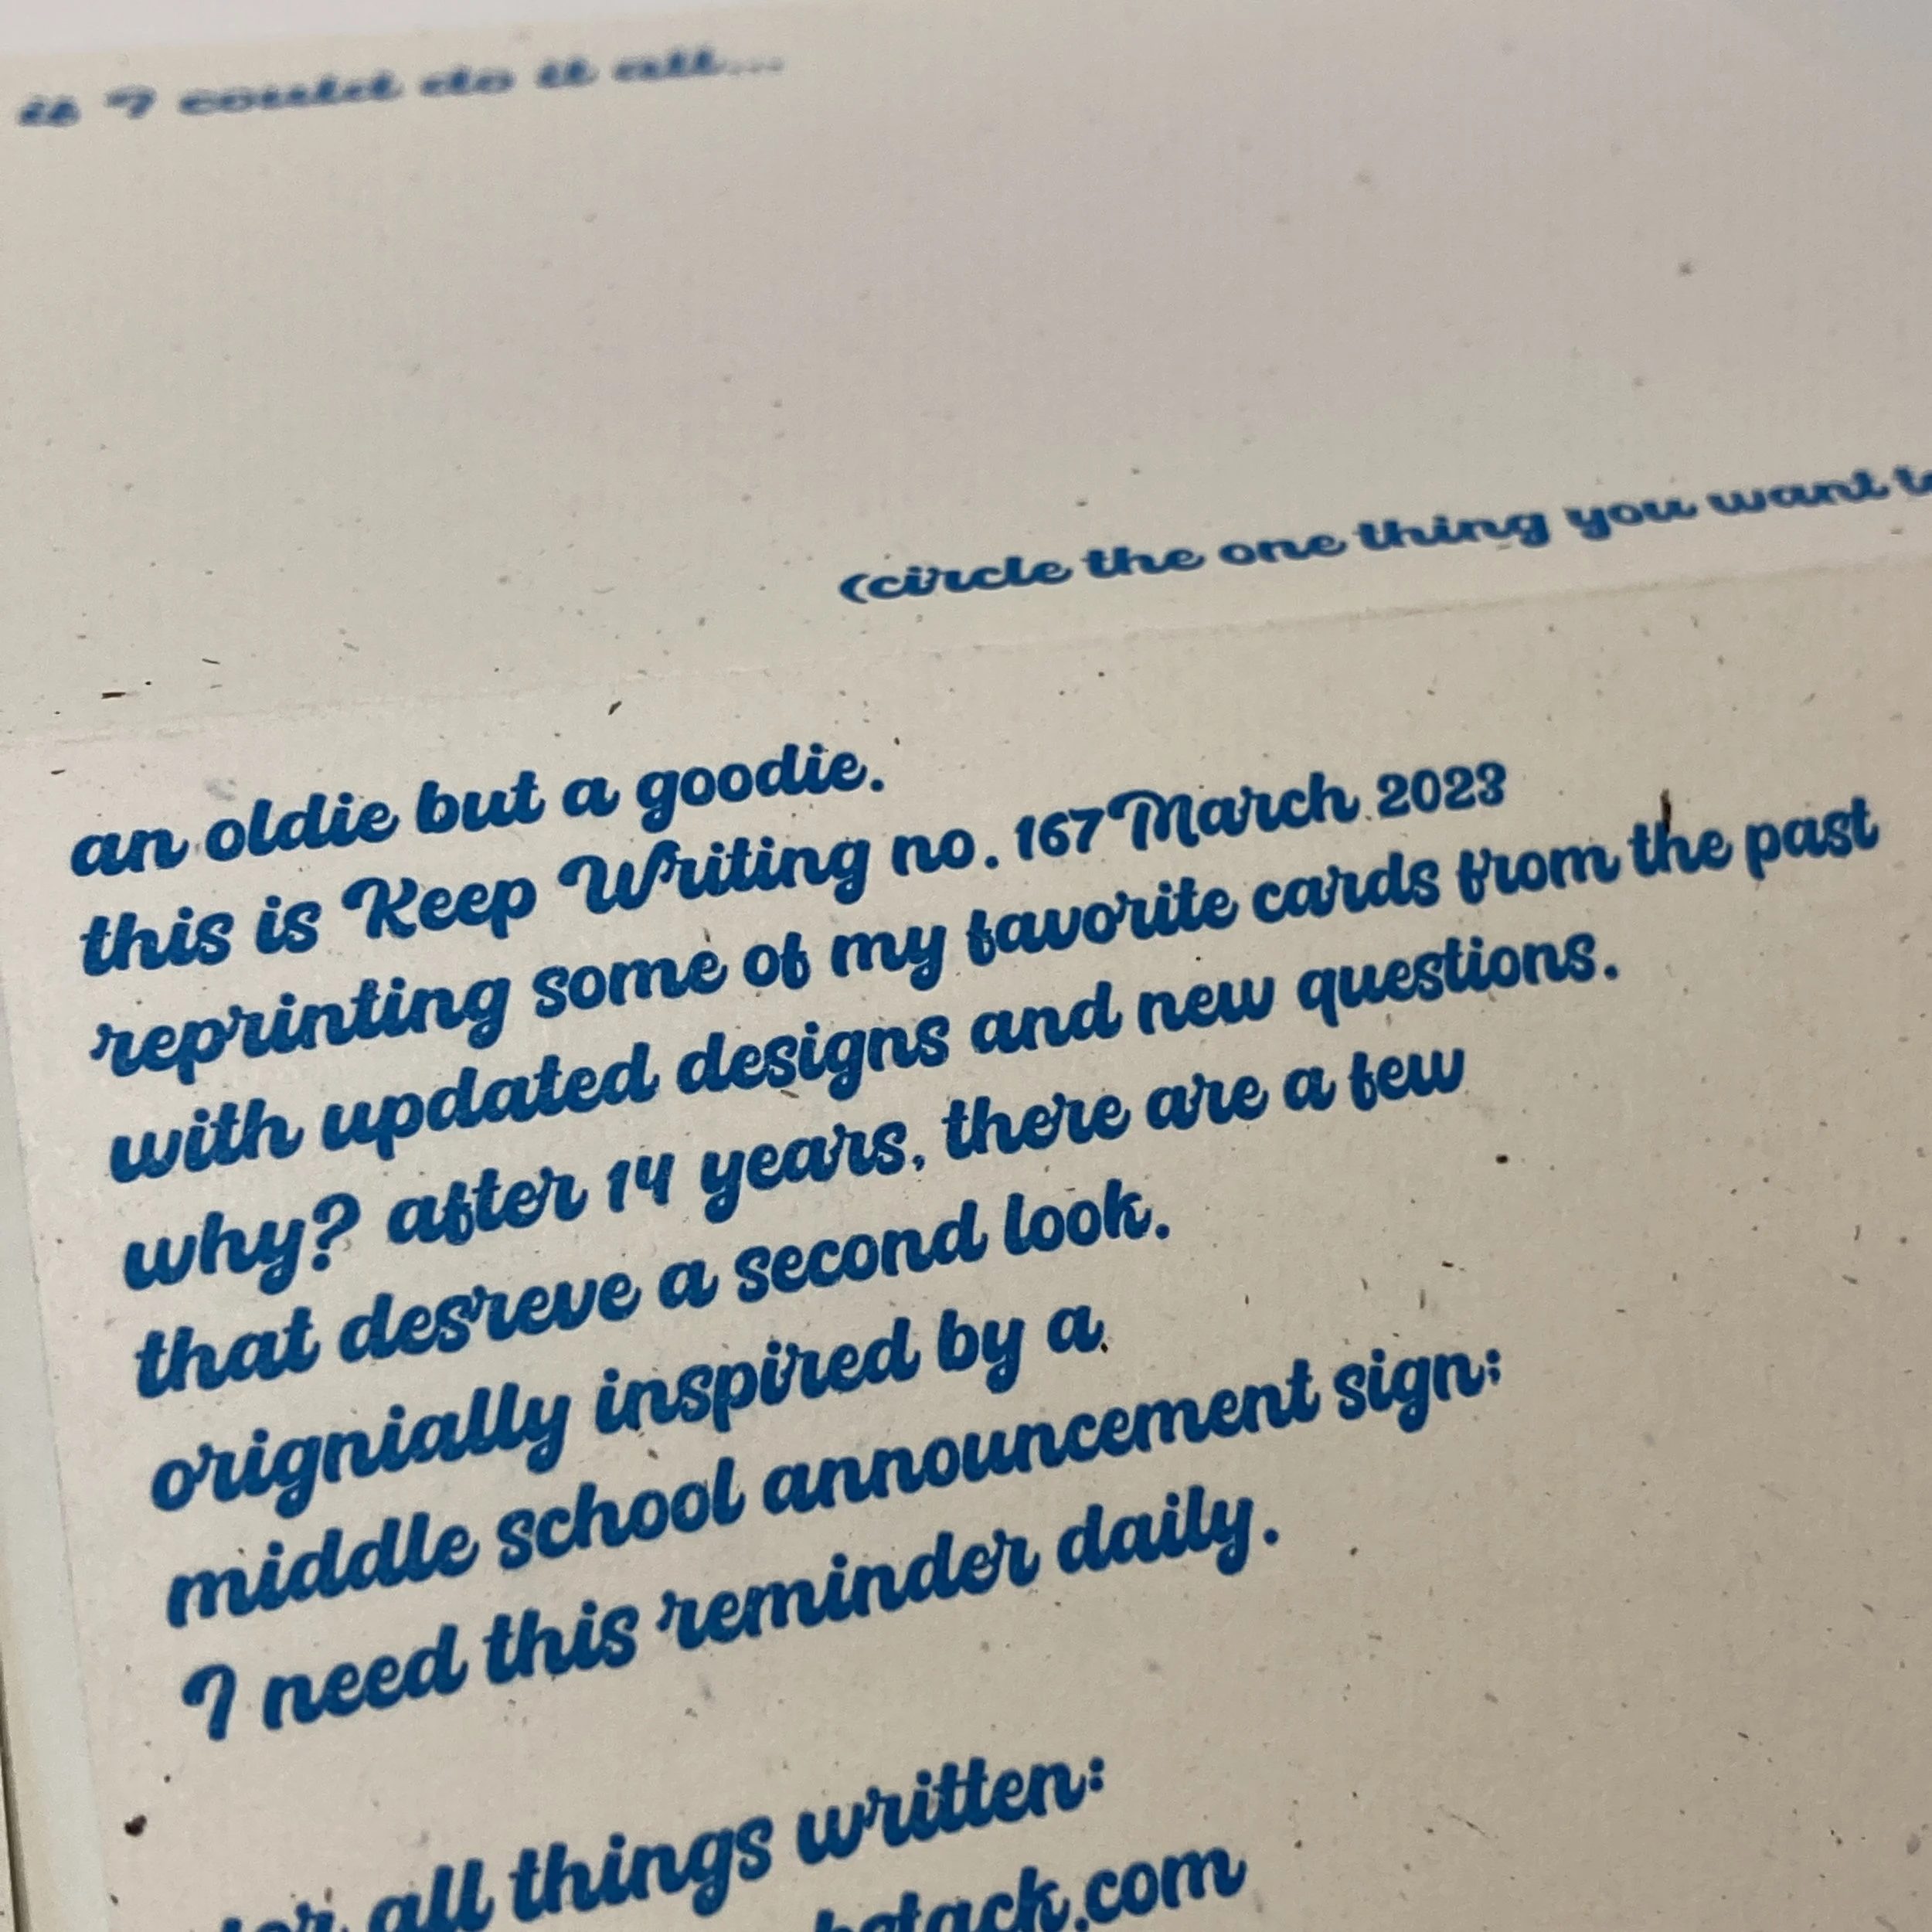 if I could do it all...
(circle the one thing you want to
an oldie but a goodie.
this is Keep Writing no. 167 March 2023
reprinting some of my favorite cards from the past
with updated designs and new questions.
why? after 14 years, there are a few
that desreve a second look.
orignially inspired by a
middle school announcement sign;
I need this reminder daily.
all things written: